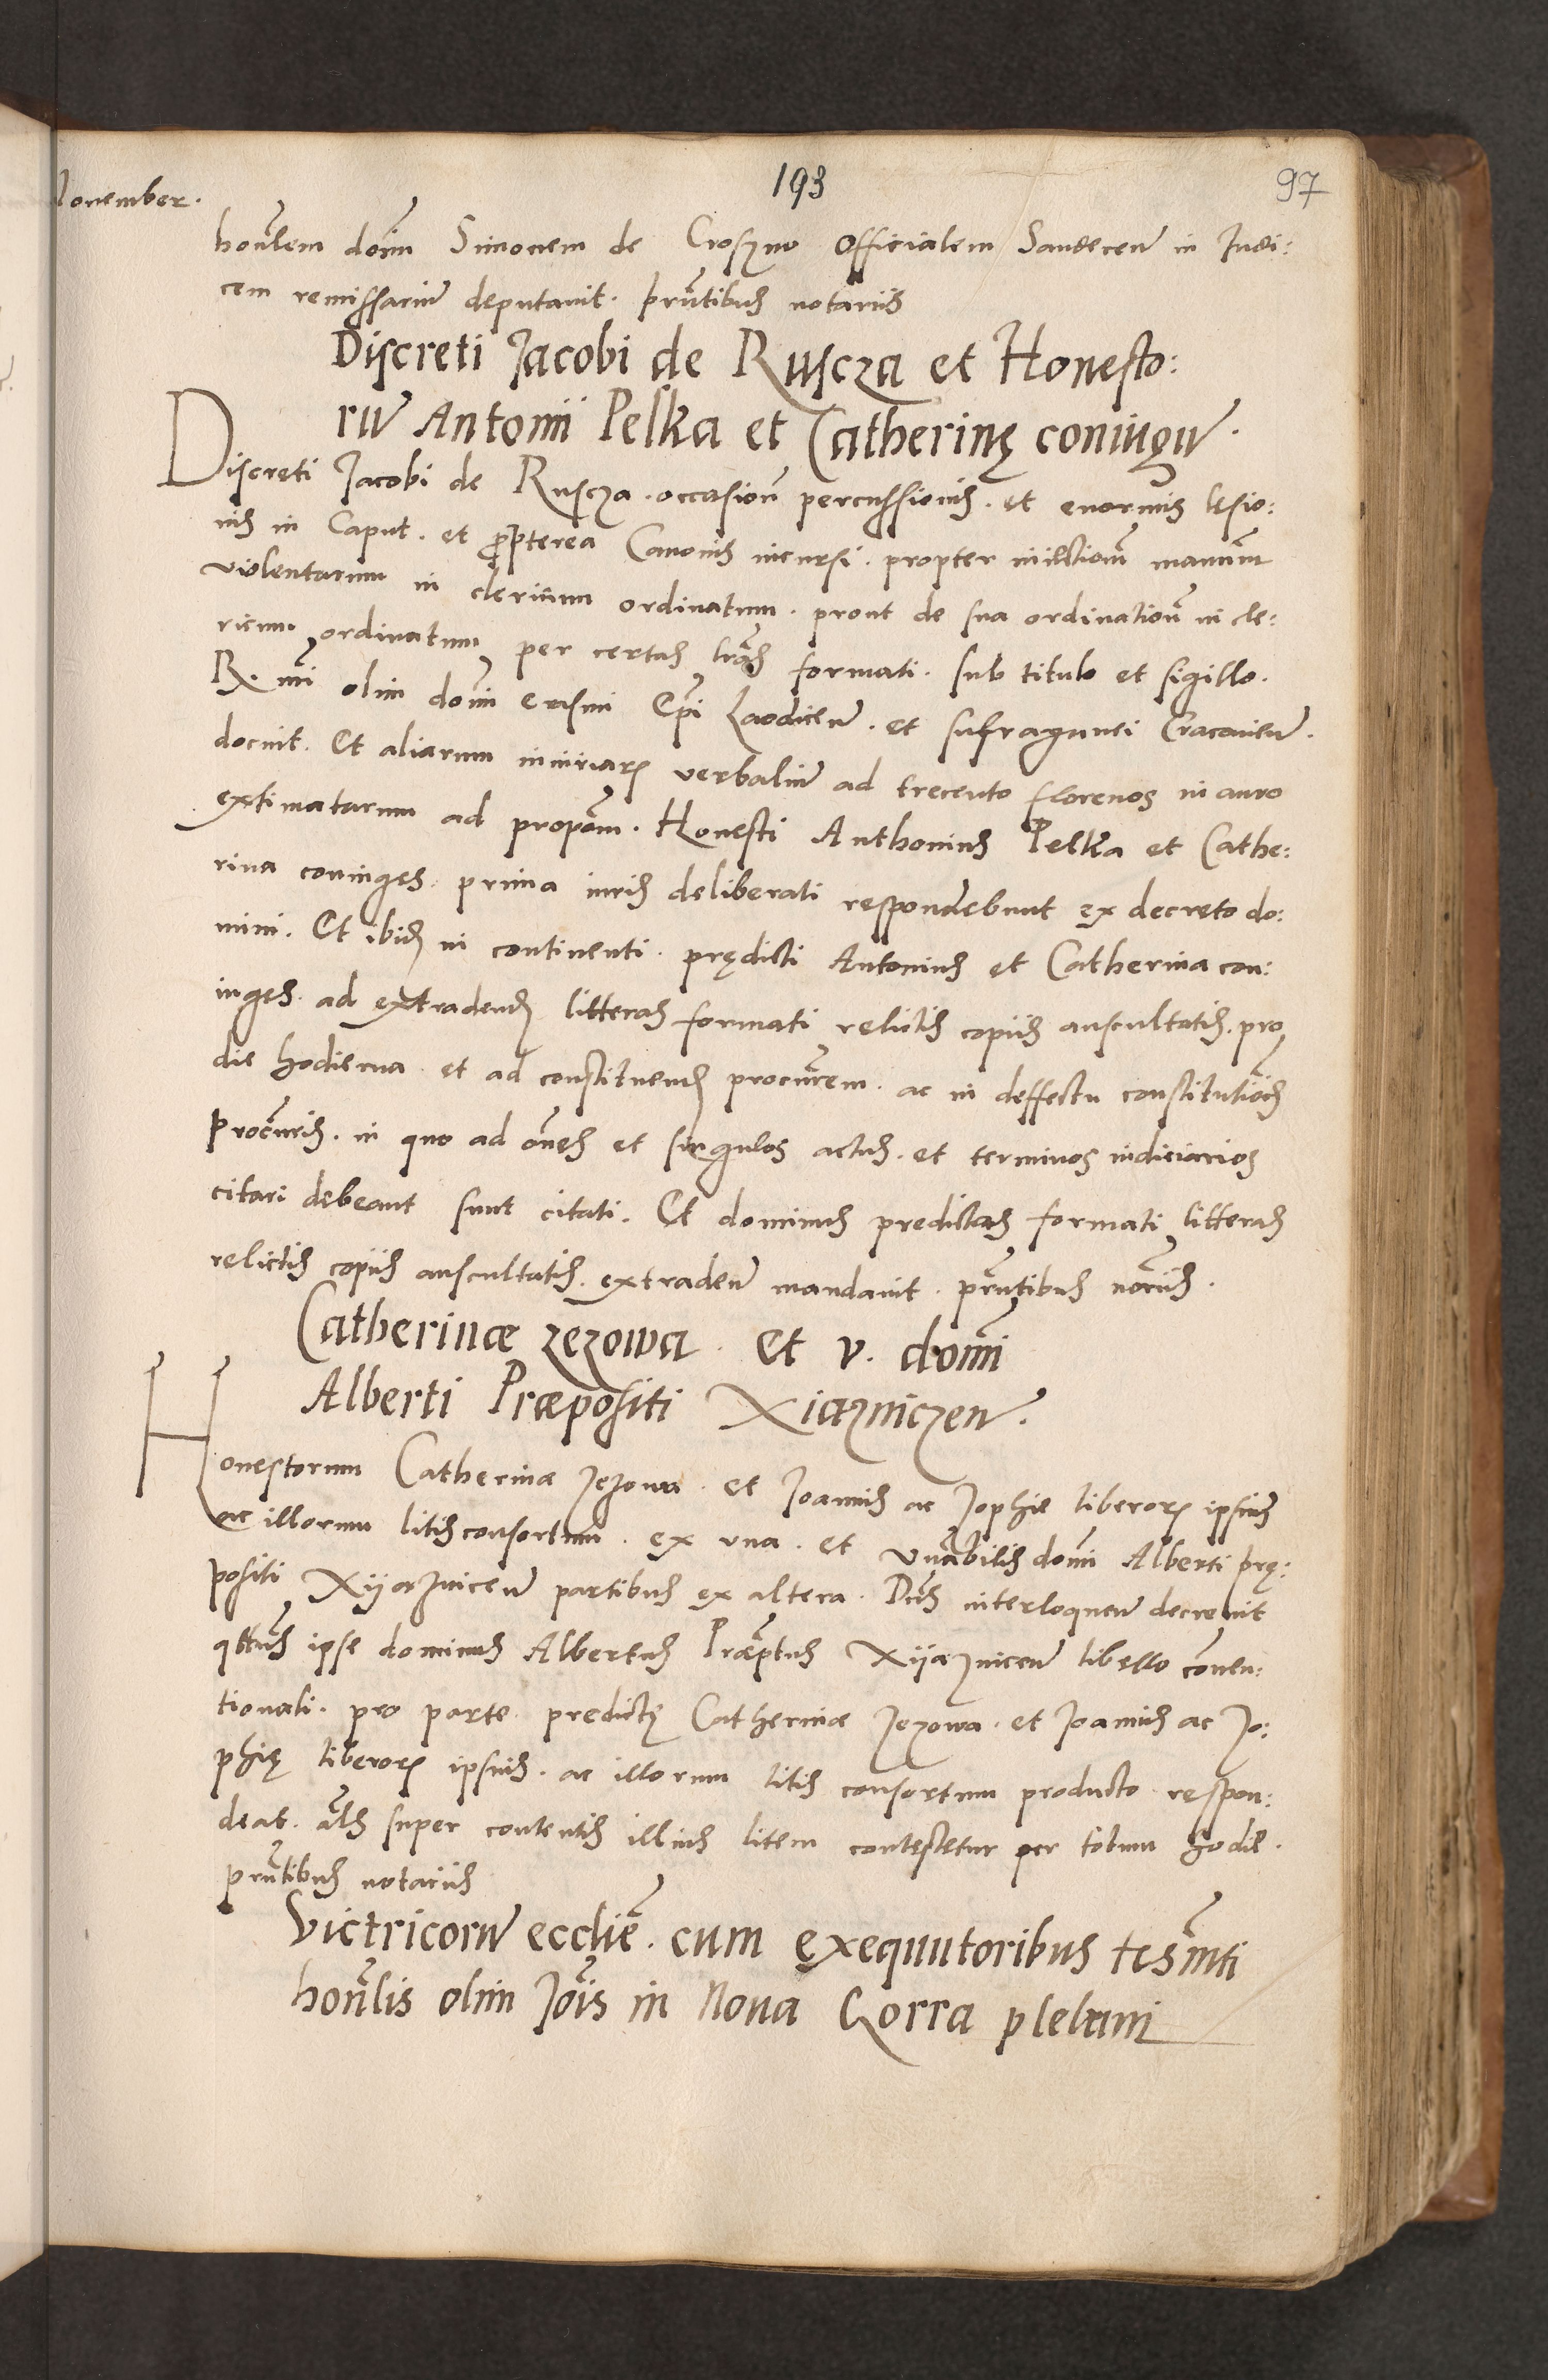 193
97
November.
honlem dom̄ Simonem de Croszno Officialem Sandecen̄ in Judi:
cem remissarium deputavit. pn̄tibus notariis
Discreti Jacobi de Ruscza et Honesto:
rum Antonii Pelka et Catherinę coniugum.
Discreti Jacobi de Ruscza. occasion̄ percussionis. et enormis lesio:
nis in Caput. et propterea Canonis incursi. propter iniectionem manum
violentarum in clericum ordinatum. prout de sua ordination̄ in cle:
ricum ordinatum per certas lrās formati. sub titulo et sigillo.
R. mi olim domi Erasmi Epi Laodicen̄. et sufraganei Cracovien̄.
docuit. Et aliarum iniuriarum verbalium ad trecento florenos in auro
extimatarum ad propom̄. Honesti Anthonius Pelka et Cathe:
rina coniuges. prima iuris deliberati respondebunt ex decreto do:
mini. Et ibidem in continenti. prędicti Antonius et Catherina con:
iuges. ad extradendum litteras formati relictis copiis auscultatis. pro
die hodierna et ad constituendum procurem. ac in deffectu constitutiois
Procuris. in quo ad om̄es et singulos actus. et terminos iudiciarios
citari debeant sunt citati. Et dominus predictas formati litteras
relictis copiis auscultatis. extraden̄ mandavit. pn̄tibus nōriis.
Catherinæ zezowa. et v. domi
Alberti Præpositi Xiazniczen̄.
Honestorum Catherinæ Jezowa. et Joannis ac Zophie liberorum ipsius
ac illorum litisconsortum. ex una. et vn̄abilis domi Alberti prę:
positi Xijaznicen̄ partibus ex altera. Dn̄s interloquen̄ decrevit
qtt̄us ipse dominus Albertus Præptus Xijaznicen̄ libello conven:
tionali. pro parte predictę Catherinæ Jezowa. et Joannis ac Zo:
phię liberorum ipsius. ac illorum litis consortum producto respon:
deat. als super contentis illius litem contestetur per totum hodie.
pn̄tibus notariis
Victricorum ecclie. cum exequutoribus tesm̄ti
honlis olim Jois in Nova Gorra plebani